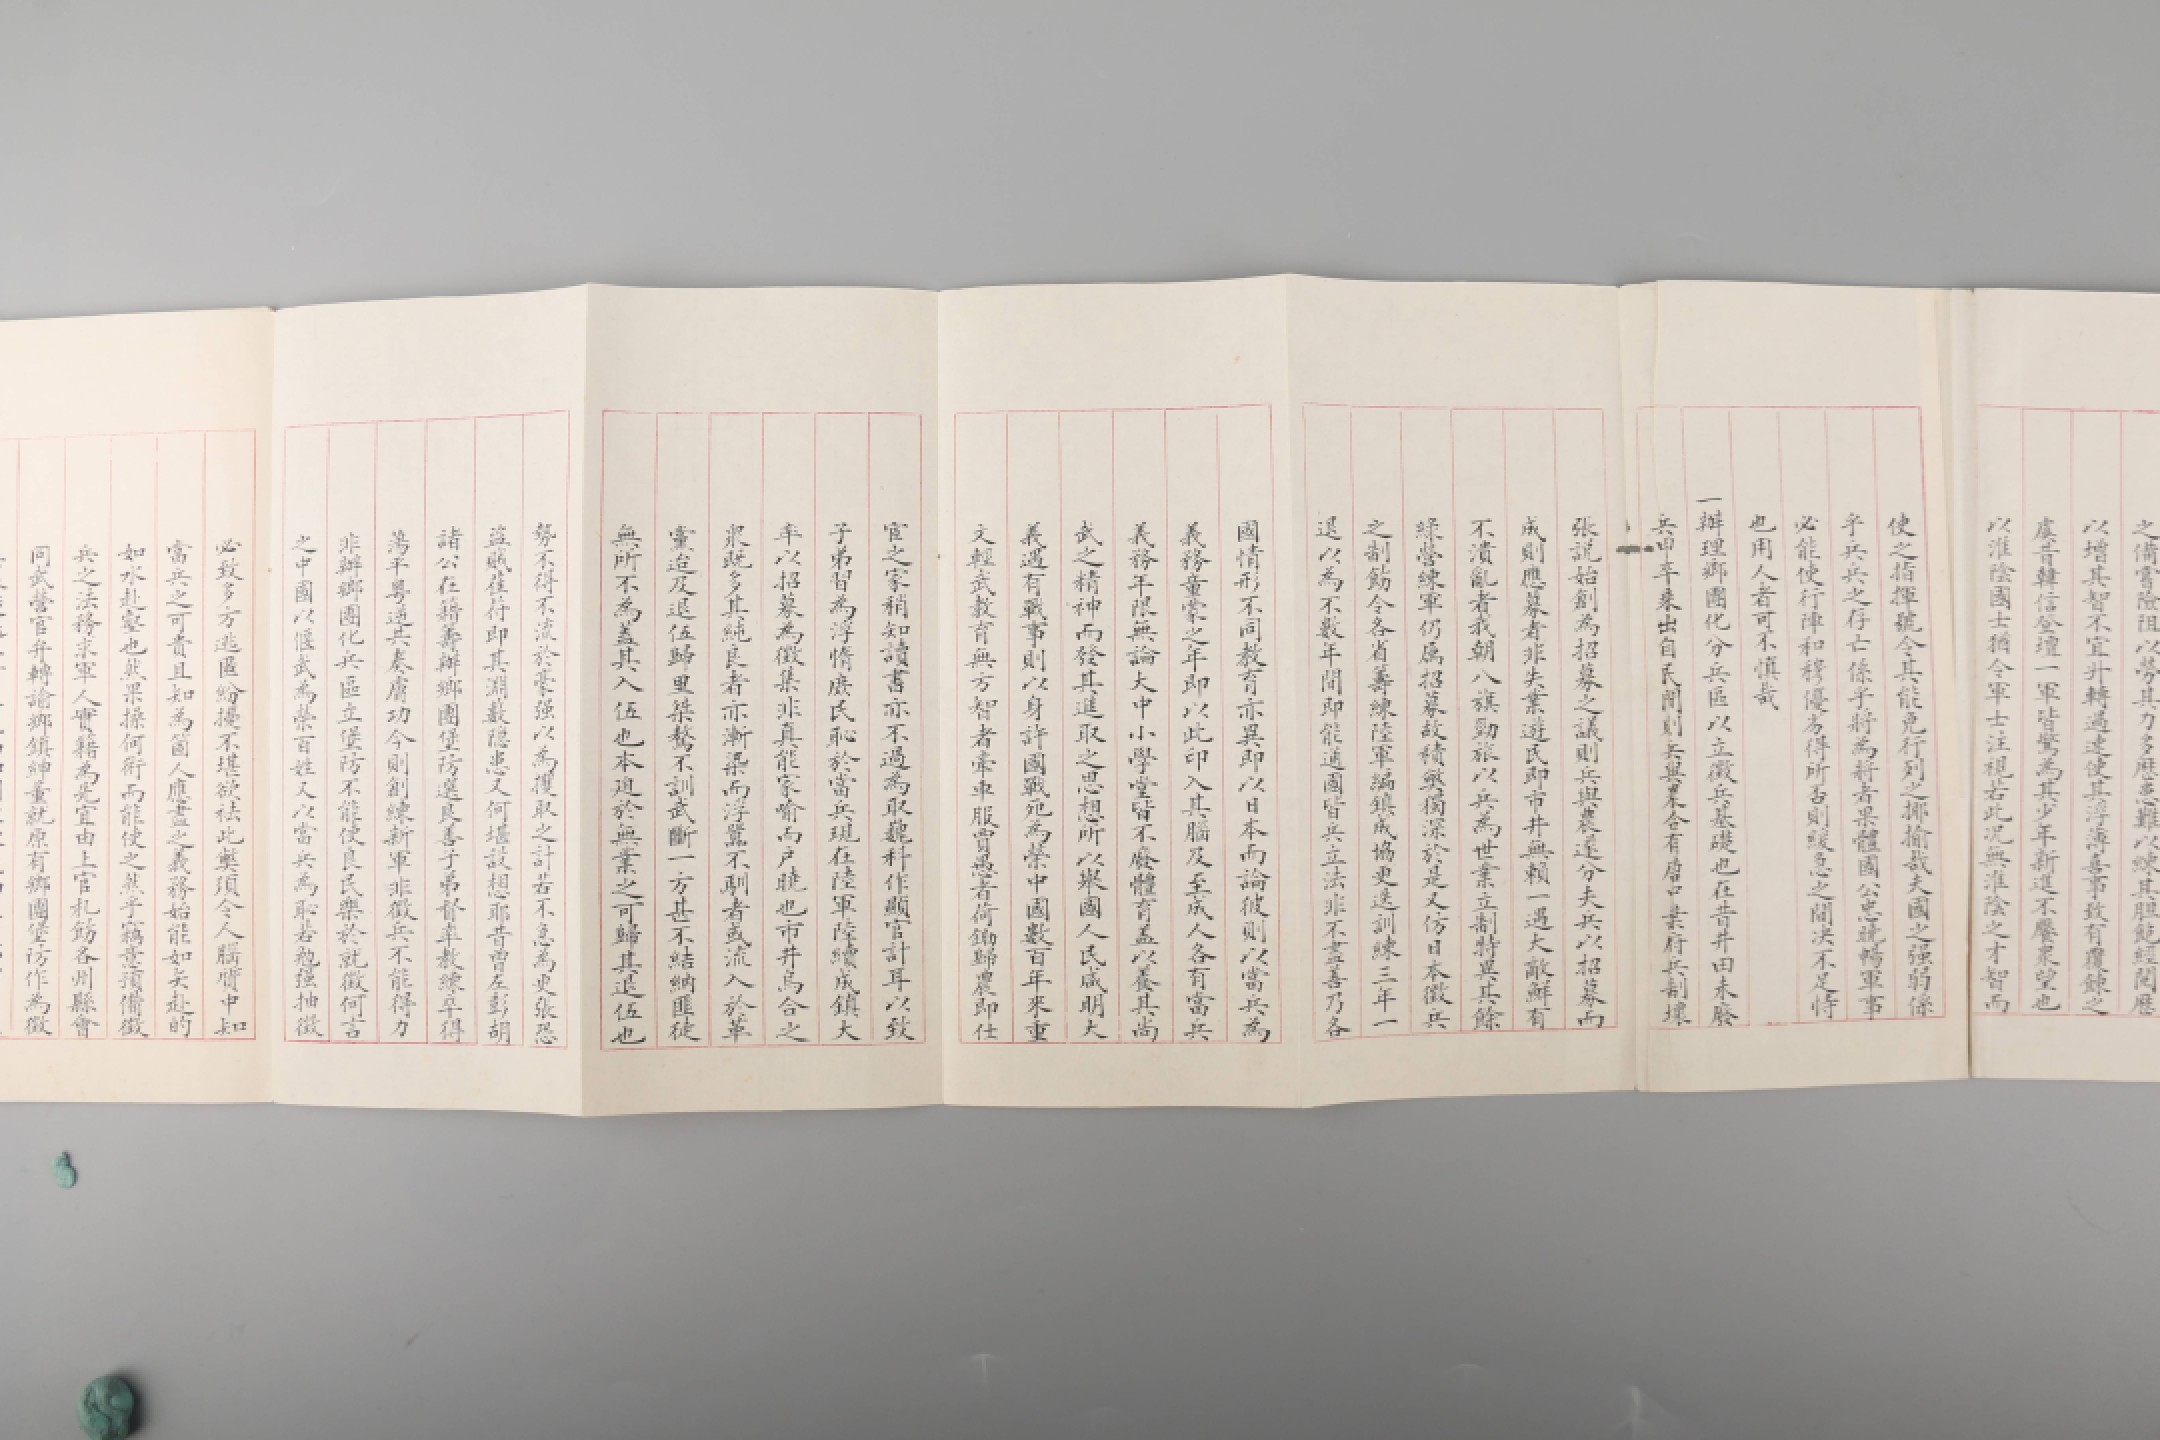 之備嘗險阻以勞其力多歷患難以練其胆飽經閱歷
以增其智不宜升轉過速使其浮薄喜事致有覆餗之
虞昔韓信登壇一軍皆驚為其少年新進不饜衆望也
以淮陰國士猶令軍士注視若此况無淮陰之才智而
使之指揮號令其能免行列之揶揄哉夫國之强弱係
乎兵兵之存亡係乎將為將者果體國公忠曉暢軍事
必能使行陣和穆優劣得所否則緩急之間决不足恃
也用人者可不慎哉
一辦理鄉團化分兵區以立徵兵基礎也在昔井田未廢
兵甲卒乘出自民間則兵與農合有唐口業府兵制壞
張説始創為招募之議則兵與農遂分夫兵以招募而
成則應募者非失業遊民即市井無賴一遇大敵鮮有
不潰亂者我朝八旗勁旅以兵為世業立制特異其餘
綠營練軍仍屬招募故積弊獨深於是又仿日本徵兵
之制飭令各省籌練陸軍編鎮成協更迭訓練三年一
退以為不數年間即能通國皆兵立法非不盡善乃各
國情形不同教育亦異即以日本而論彼則以當兵為
義務童蒙之年即以此印入其腦及至成人各有當兵
義務年限無論大中小學堂皆不廢體育盖以養其尚
武之精神而發其進取之思想所以舉國人民咸明大
義遇有戰事則以身許國戰死為榮中國數百年來重
文輕武教育無方智者牽車服賈愚者荷鋤歸農即仕
宦之家稍知讀書亦不過為取巍科作顯官計耳以致
子弟習為浮惰庶民恥於當兵現在陸軍陸續成鎮大
率以招募為徵集非真能家喻而户曉也市井烏合之
衆既多其純良者亦漸染而浮囂不馴者或流入於革
黨迨及退伍歸里桀驁不訓武斷一方甚不結納匪徒
無所不為盖其入伍也本迫於無業之可歸其退伍也
勢不得不流於豪强以為獲取之計若不急為更張恐
盜賊萑苻即其淵藪隱患又何堪設想耶昔曾左彭胡
諸公在籍籌辦鄉團堡防選良善子弟督率教練卒得
蕩平粤逆共奏膚功今則創練新軍非徵兵不能得力
非辦鄉團化兵區立堡防不能使良民樂於就徵何言
之中國以偃武為榮百姓又以當兵為恥若勉强抽徵
必致多方逃匿紛擾不堪欲袪此弊須令人腦質中知
當兵之可貴且知為箇人應盡之義務始能如矢赴的
如水赴壑也然果操何術而能使之然乎竊意預備徵
兵之法務求軍人實籍為先宜由上官札飭各州縣會
同武營官弁轉諭鄉鎮紳董就原有鄉團堡防作為徵